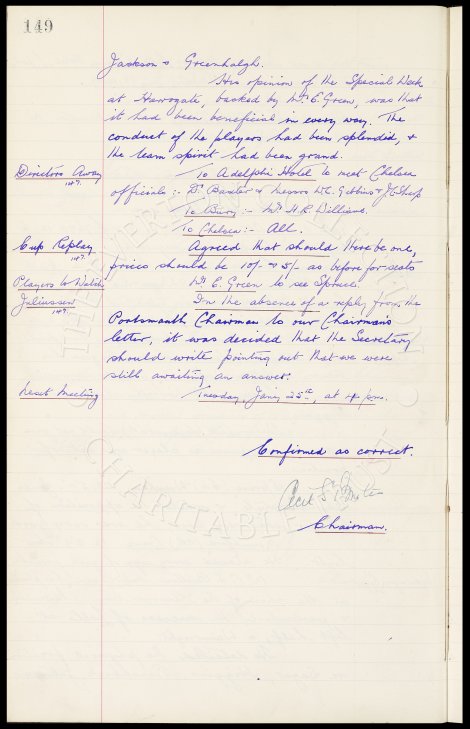 149
Jackson & Greenhalgh.
His opinion of the Special Week
at Harrogate, backed by Mr. E. Green, was that
it had been beneficial in every way. The
conduct of the players had been splendid, &
the team spirit had been grand.
Directors Away
149.
To Adelphi Hotel to meet Chelsea
officials :- Dr. Baxter & Messrs W.C. Gibbins & J.C. Sharp
To Bury :- Mr. H.R. Williams.
To Chelsea :- All.
Cup Replay
149.
Agreed that should there be one,
prices should be 10/- & 5/- as before for seats
Players to Watch
Mr. E. Green to see Spruce.
Juliussen
149.
In the absence of a reply from the
Portsmouth Chairman to our Chairman's
letter, it was decided that the Secretary
should write pointing out that we were
still awaiting an answer.
Next Meeting
Tuesday, Jany. 25th, at 4 pm.
Confirmed as correct.
Cecil S.
Chairman.
CHARITABLE